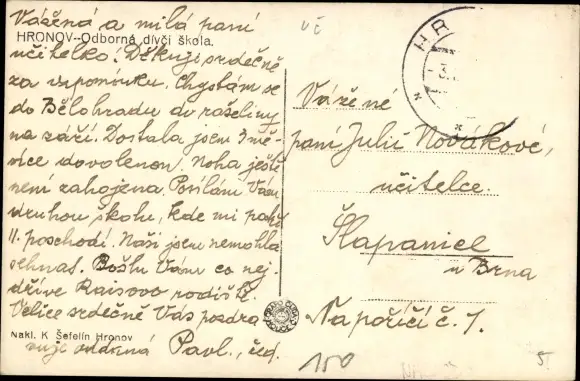 Vážená a milá paní
HRONOV--Odborná dívčí škola.
učitelko! Děkuji srdečně
za vzpomínku. Chystám se
do Bělohradu do rašeliny
na září. Dostala jsem 3 mě-
síce dovolenou. Noha ještě
není zahojena. Posílám Vám
druhou školu, kde mi patří
II. poschodí. Naši jsem nemohla
sehnat. Pošlu Vám co nej-
dříve Raisovo rodiště.
Velice srdečně Vás pozdra
Nakl. K Šefelín Hronov
vuje oddaná Pavl., řed.
uč
HR
3.
Vážené
paní Julii Novákové,
učitelce.
Šlapanice
u Brna
Na poříčí č. 7.
150
5